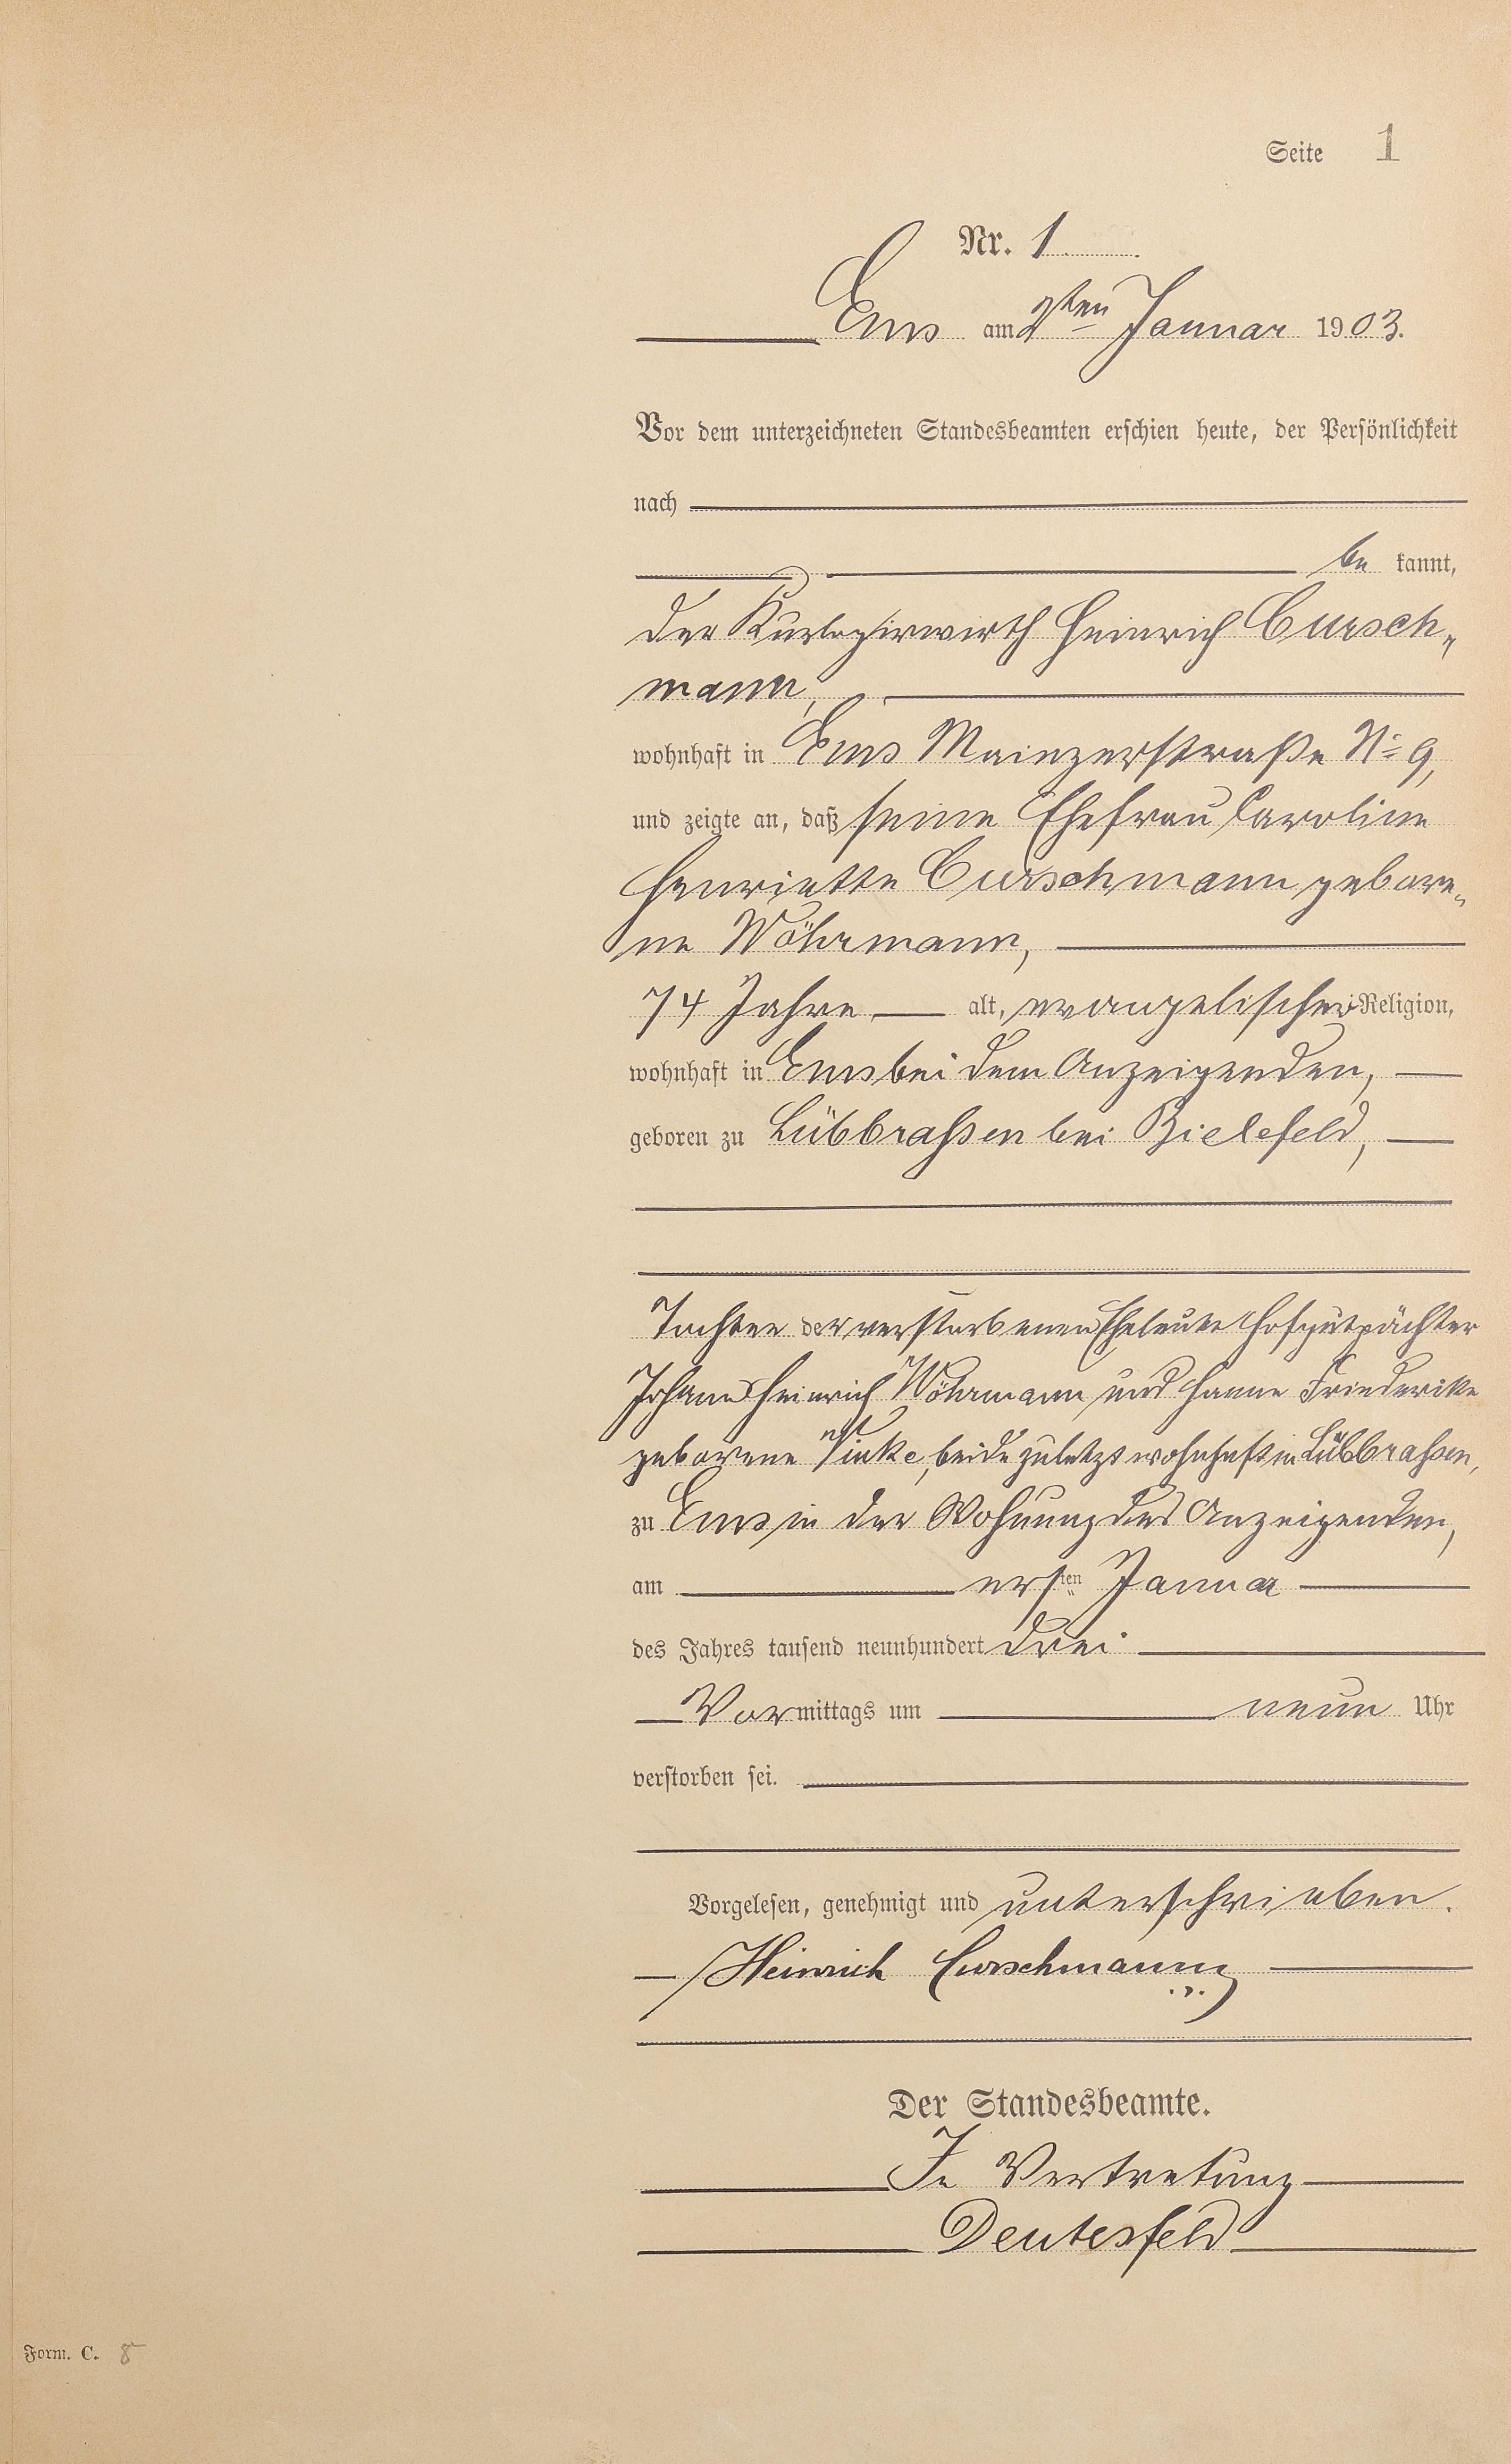 Seite 1
Nr. 1
Ems am 2ten Januar 1903.
Vor dem unterzeichneten Standesbeamten erschien heute, der Persönlichkeit
nach
be kannt,
der Kurlogirwirth Heinrich Cursch-
mann,
wohnhaft in Ems Mainzerstraße No 9,
und zeigte an, daß seine Ehefrau Caroline
Henriette Curschmann gebore-
ne Wöhrmann,
74 Jahre alt, evangelischer Religion,
wohnhaft in Ems bei dem Anzeigenden,
geboren zu Lübbraßen bei Bielefeld,
Tochter der verstorbenen Eheleute Hofgutpächter
Johann Heinrich Wöhrmann und Hanne Friederike
geborene beide zuletzt wohnhaft in Lübbraßen,
zu Ems in der Wohnung des Anzeigenden,
am ersten Januar
des Jahres tausend neunhundert drei
Vormittags um neun Uhr
verstorben sei.
Vorgelesen, genehmigt und unterschrieben.
Heinrich Curschmann
Der Standesbeamte.
In Vertretung
Deutesfeld
Form. C. 8